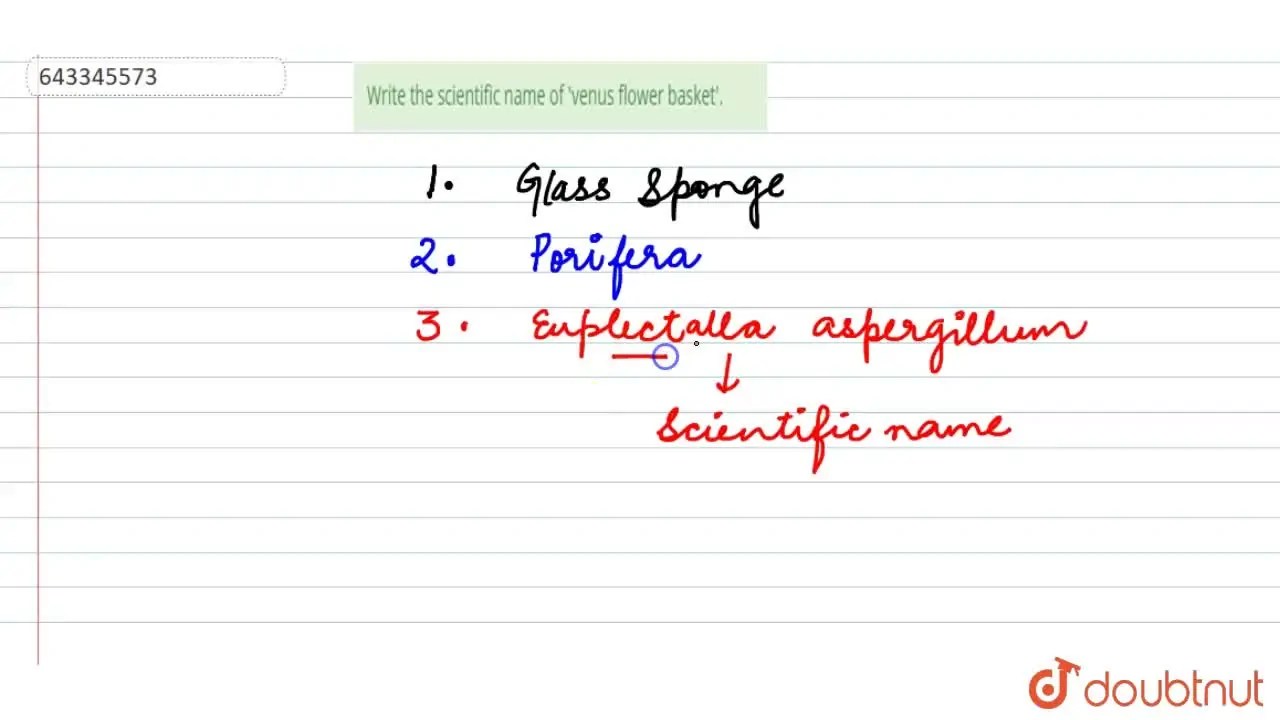 643345573
Write the scientific name of 'venus flower basket'.
1. Glass Sponge
2. Porifera
3. Euplectalla aspergillum
Scientific name
doubtnut